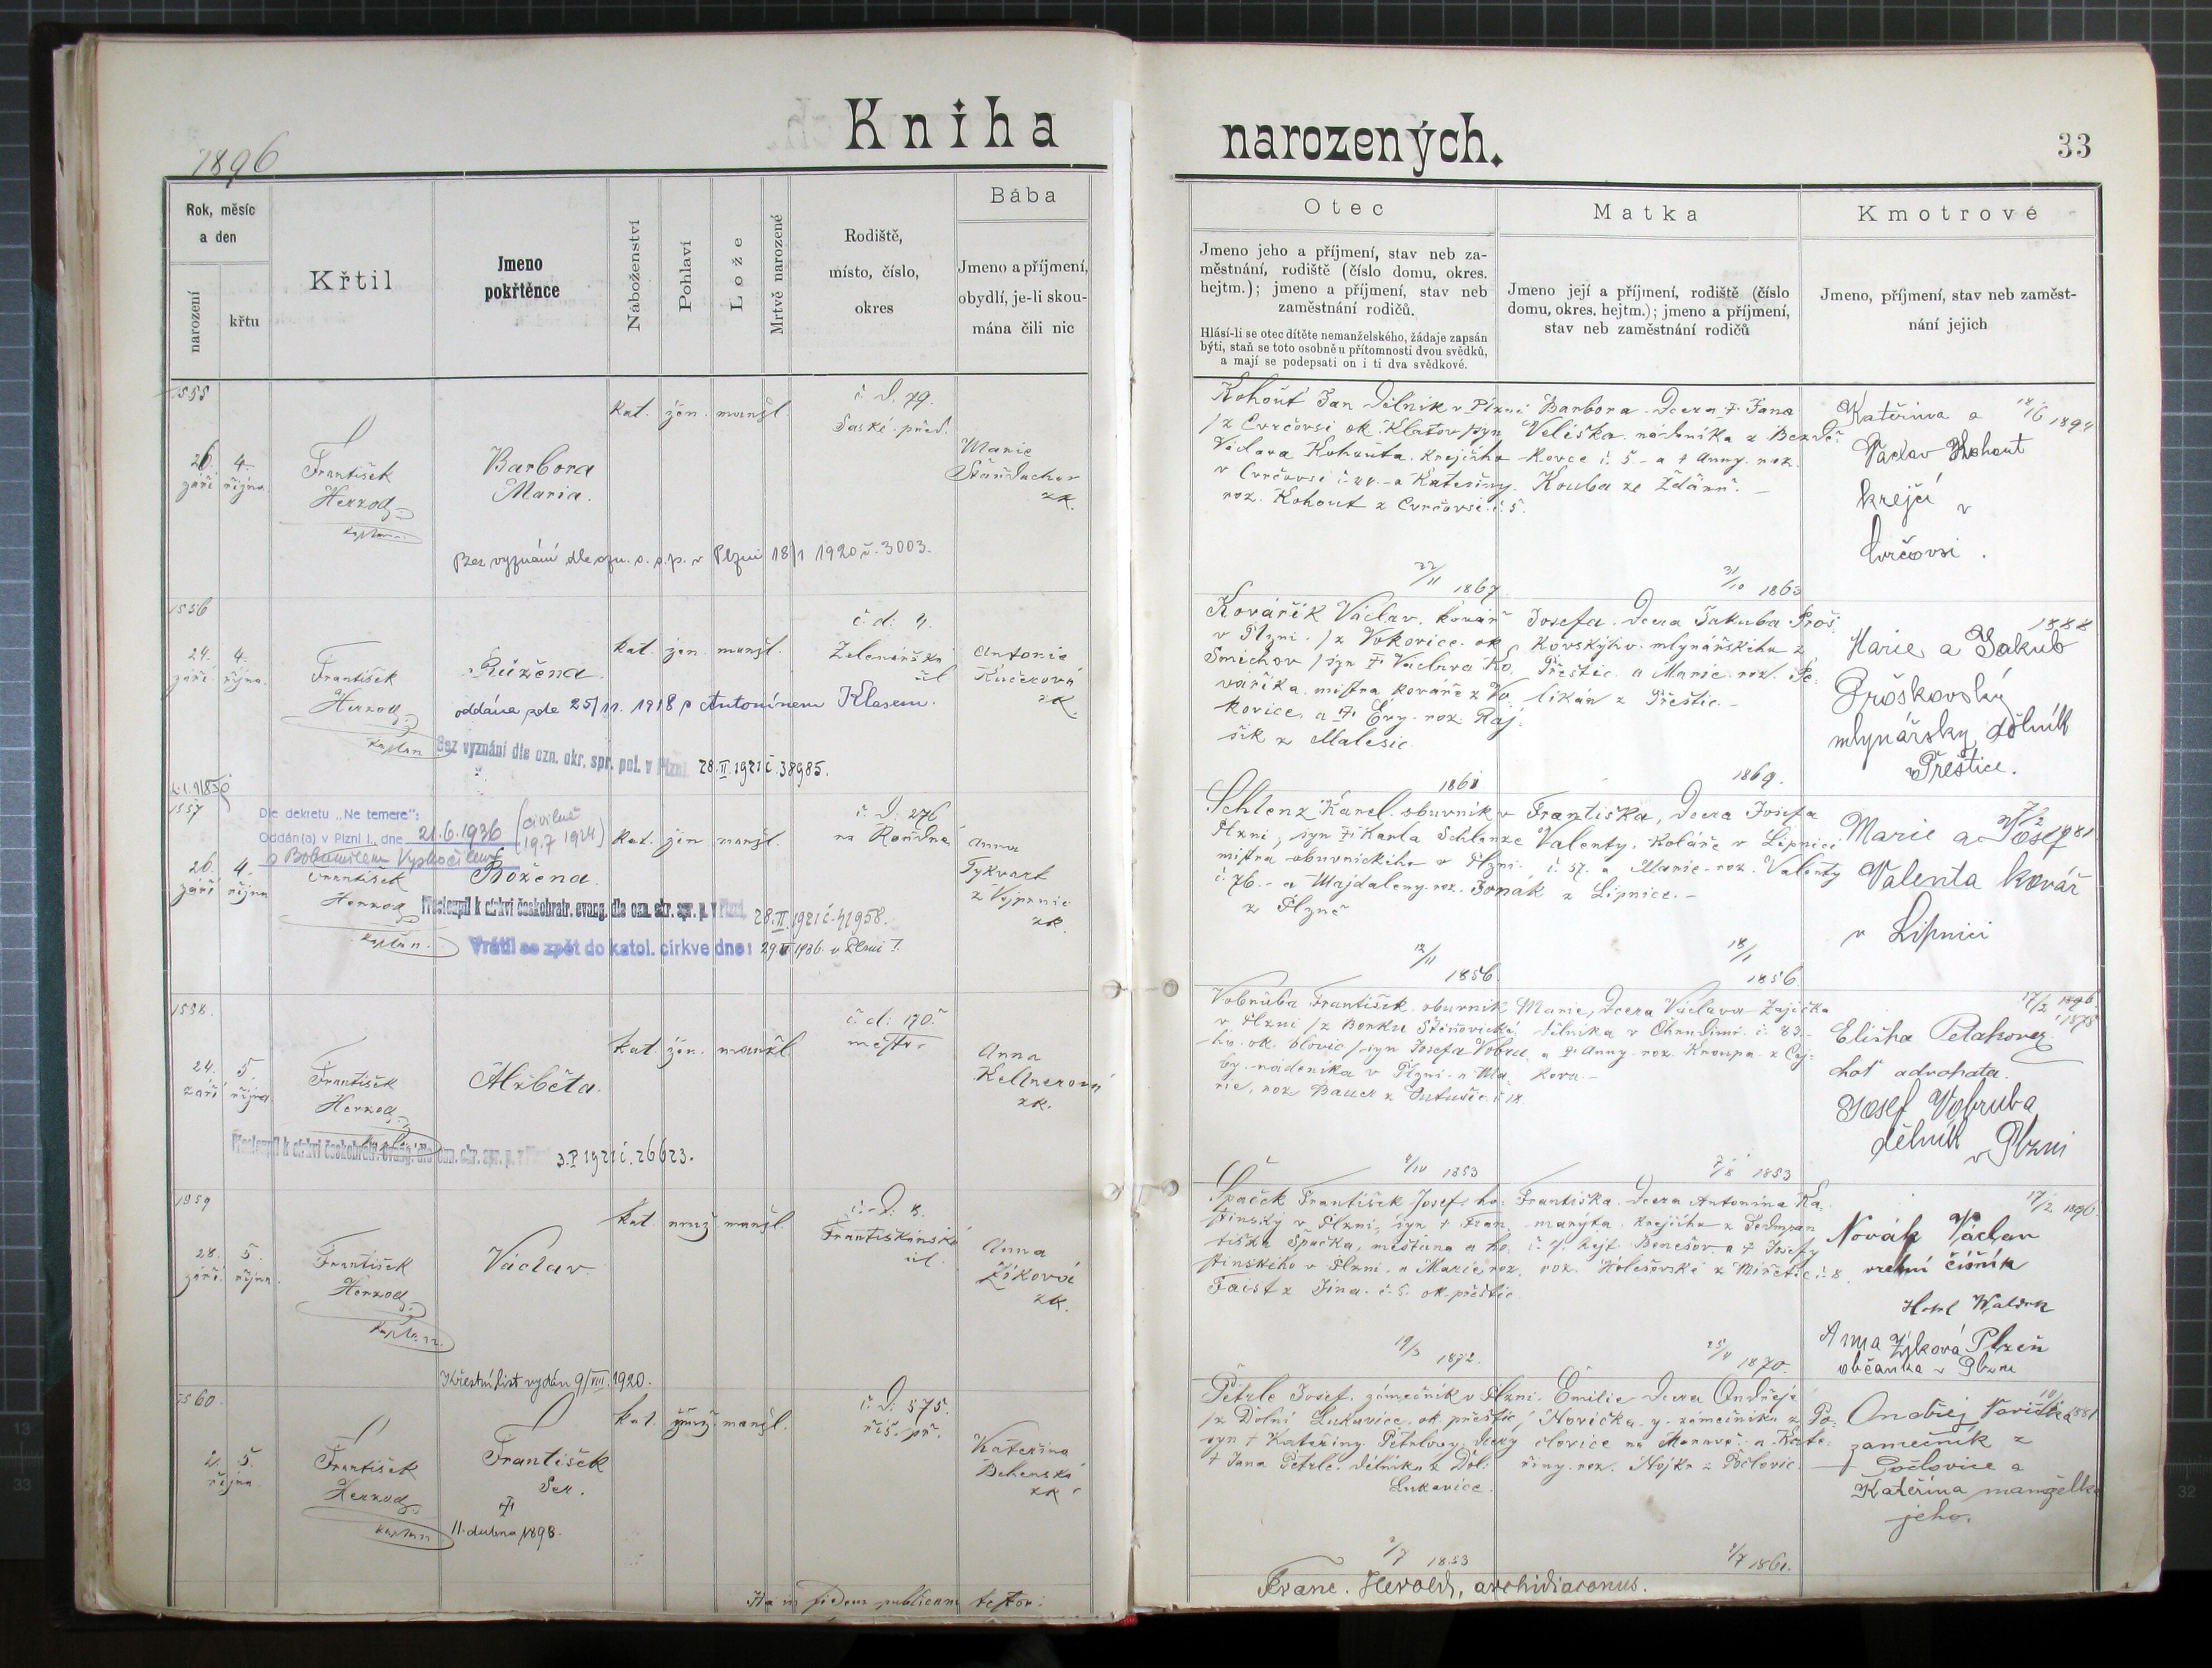 Kniha
narozených.
33
1896
Rok, měsíc
a den
narození
křtu
Křtil
Jmeno
pokřtěnce
Náboženství
Pohlaví
Lože
Mrtvě narozené
Rodiště,
místo, číslo,
okres
Bába
Jmeno a příjmení,
obydlí, je-li skou-
mána čili nic
Otec
Jmeno jeho a příjmení, stav neb za-
městnání, rodiště (číslo domu, okres.
hejtm.); jmeno a příjmení, stav neb
zaměstnání rodičů.
Hlásí-li se otec dítěte nemanželského, žádaje zapsán
býti, staň se toto osobně u přítomnosti dvou svědků,
a mají se podepsati on i ti dva svědkové.
Matka
Jmeno její a příjmení, rodiště (číslo
domu, okres. hejtm.); jmeno a příjmení,
stav neb zaměstnání rodičů
Kmotrové
Jmeno, příjmení, stav neb zaměst-
nání jejich
1555
26. září
4. října
František
Herzog
kaplan
Barbora
Maria.
kat. žen. manžl.
č. d. 79.
Saské před.
Marie
zk.
Bez vyznání dle ozn. o. s. p. v Plzni 18/1 1920 č. 3003.
Kohout Jan dělník v Plzni
/z Cvrčovsi ok. Klatov/ syn
Václava Kohouta krejčího
v Cvrčovsi č. 24. a Kateřiny
roz. Kohout z Cvrčovsi č. 5.
22/11 1867
Barbora dcera † Jana
Veliška nádeníka z Bezdě-
kovce č. 5. a † Anny roz.
Kouba ze Ždáru.
31/10 1863
Kateřina a
Václav Kohout
krejčí v
Cvrčovsi.
1556
24. září
4. října
František
Herzog
kaplan
Růžena
kat. žen. manžl.
č. d. 4.
Zelenářská
ul.
Antonie
Kučerová
zk.
oddána zde 25/11. 1918 s Antonínem Klasem.
Bez vyznání dle ozn. okr. spr. pol. v Plzni 28.II.1921 č. 38985.
Kovářík Václav, kovář
v Plzni /z Vokovice ok.
Smíchov/ syn † Václava Ko-
váříka mistra kováře z Vo-
kovice, a † Evy roz. Raj-
šík z Malesic
1861
Josefa dcera Jakuba Proš-
kovskýho mlynářskiho z
Přeštic a Marie roz. Pe-
likán z Přeštic.
1869.
1888
Marie a Jakub
Proškovský
mlynářský dělník
Přeštice.
1557
26. září
4. října
Dle dekretu „Ne temere":
Oddán(a) v Plzni I., dne 21.6.1936 (civilně 19.7 1924)
s Bohumilem Vyskočilem
František
Herzog
kaplan.
Božena.
kat. žen. manžl.
č. d. 276
na Roudné
Anna
Tykvart
z Vejprnic
zk.
Přestoupil k církvi českobratr. evang. dle ozn. okr. spr. p. v Plzni 28.II.1921 č. 41958.
Vrátil se zpět do katol. církve dne: 29.V.1936 v Plzni I.
Schlenz Karel obuvník v
Plzni, syn † Karla Schlenze
mistra obuvnického v Plzni
č. 76. a Majdaleny roz. Jonák
z Plzně
12/11 1856.
Františka, dcera Josefa
Valenty, koláře v Lipnici
č. 57. a Marie roz. Valenty
z Lipnice.
18/1 1856.
Marie a Josef
Valenta kovář
v Lipnici
1558.
24. září
5. října
František
Herzog
kaplan
Alžběta.
kat. žen. manžl.
č. d. 170.
město
Anna
Kellnerová
zk.
Přestoupil k církvi českobratr. evang. dle ozn. okr. spr. p. v Plzni 3.I 1921 č. 26623.
Vobruba František obuvník
v Plzni /z Borku
ho ok. Blovic/ syn Josefa Vobru-
by nádeníka v Plzni a Ma-
rie, roz. Bauer z
9/10 1853
Marie, dcera Václava Zajíčka
dělníka v Chrudimi č. 83.
a † Anny roz. Kroupa
7/8 1853
17/2 1896
Eliška
choť advokáta.
Josef Vobruba
dělník v Plzni
1959
28. září
5. října
František
Herzog
kaplan.
Václav
kat. muž. manžl.
č. d. 8.
Františkánská
ul.
Anna
Žiková
zk.
Křestní list vydán 9/VIII. 1920.
Špaček František Josef ho-
stinský v Plzni, syn † Fran-
tiška Špačka, měštana a ho-
stinského v Plzni a Marie roz.
Faist z Jína č. 5. ok. přeštic
19/3 1872.
Františka dcera Antonína Ka-
marýta krejčího z Sedmpan
č. 7. hejt Benešov a † Josefy
roz. Holešovské z Miřetic č. 8.
25/4 1870.
17/2 1896
Novák Václav
vrchní číšník
Hotel Waldek
Anna Žiková Plzeň
občanka v Plzni
1560.
2. října
5.
František
Herzog
kaplan
František
Ser.
†
11. dubna 1898.
kat. muž. manžl.
č. d. 575.
říš. př.
Kateřina
zk
Petrle Josef, zámečník v Plzni
/z Dolní Lukavice ok. přeštic/
syn † Kateřiny Petrlovy dcery
† Jana Petrle dělníka z Dol.
Lukavice.
2/7 1853
Emilie dcera Ondřeje
Novička zámečníka z Po-
človice na Moravě a Kate-
řiny roz. Hojka z Počlovic.
2/7 1861.
Ondřej Novička
zamečník z
Počlovice a
Kateřina manželka
jeho.
Ita in fidem publicam testor:
Franc. Herold, archidiaconus.